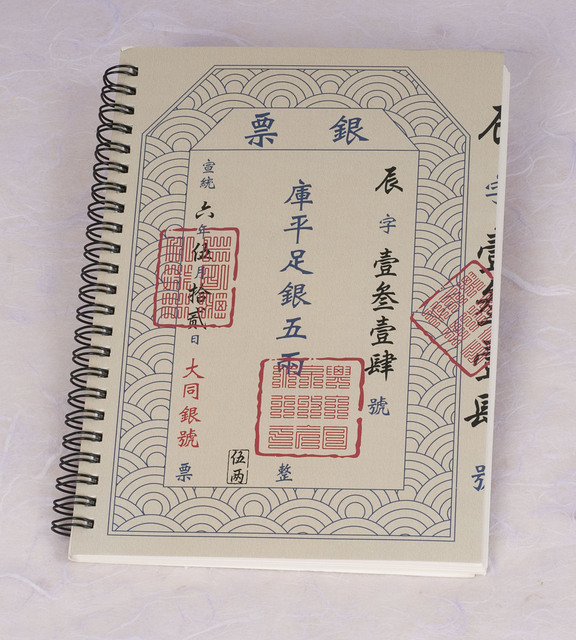 銀票
辰字壹叁壹肆號
庫平足銀五兩
整
伍兩
宣統六年伍月拾貳日
大同銀號
票
辰字壹叁壹肆號